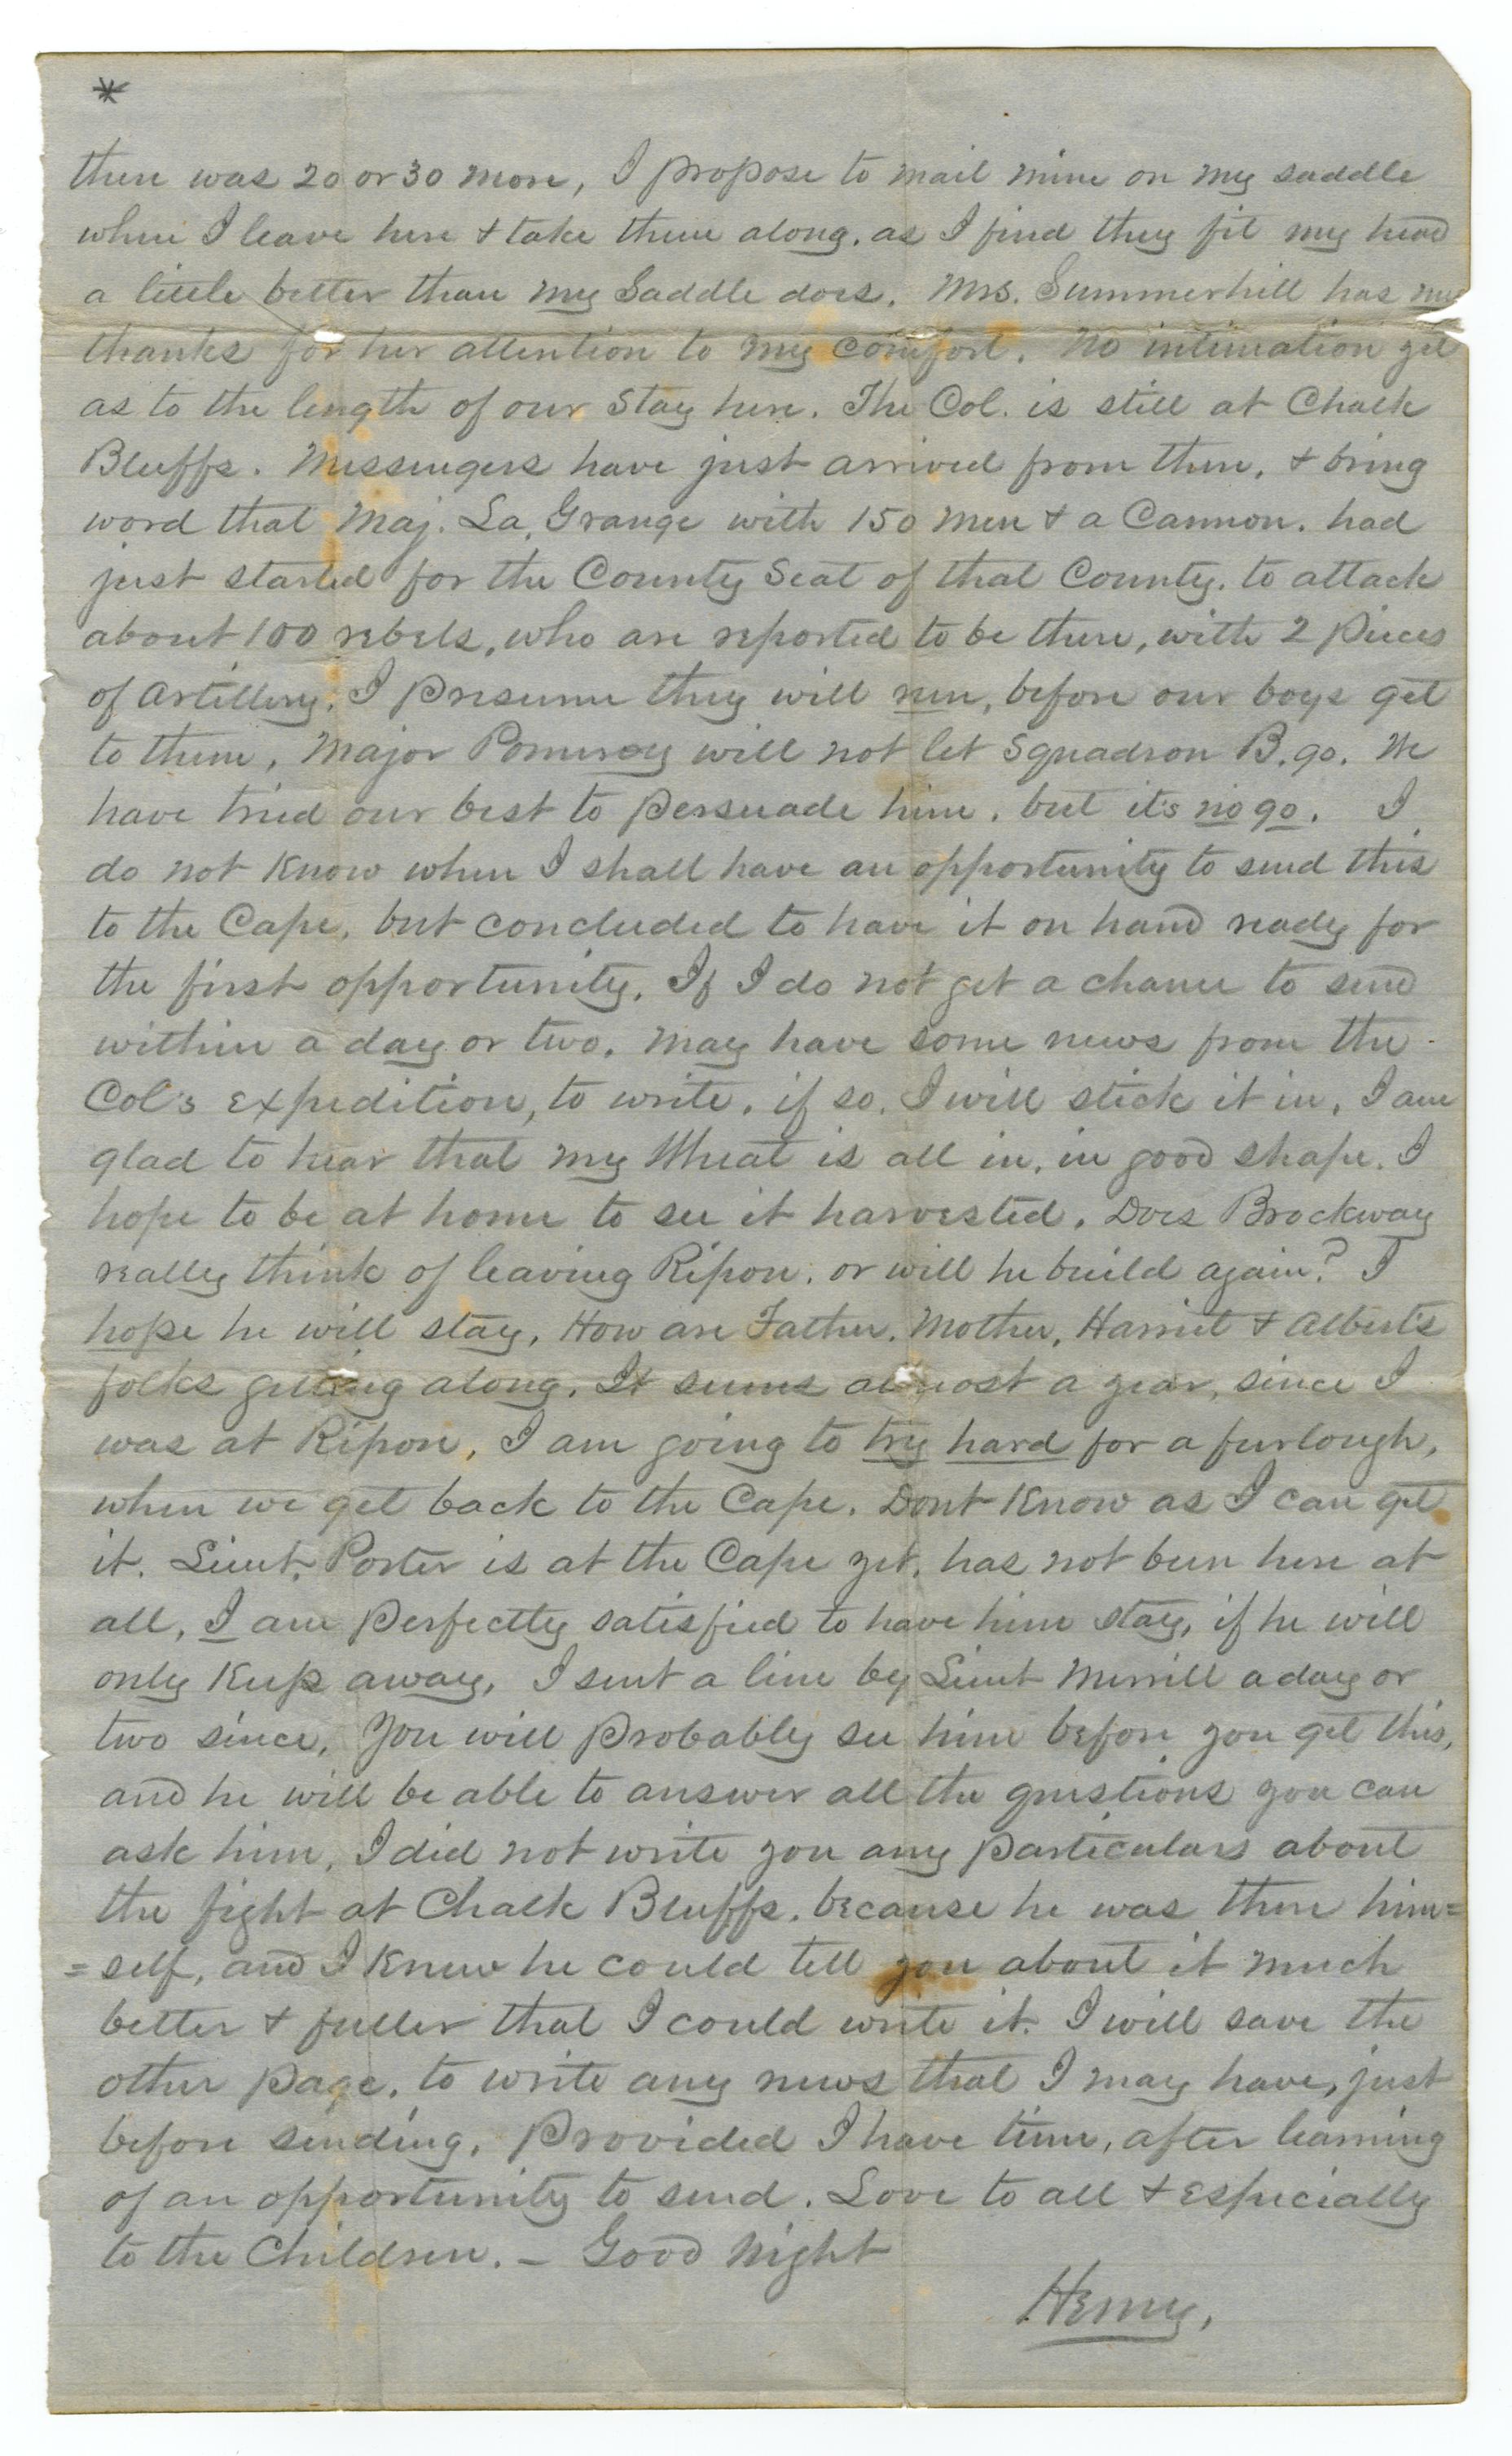 *
there was 20 or 30 more, I propose to mail mine on my saddle
when I leave here & take them along. as I find they fit my head
a little better than my Saddle does. Mrs. Summerhill has my
thanks for her attention to my comfort. No intimation yet
as to the length of our Stay here. The Col. is still at Chalk
Bluffs. Messengers have just arrived from there, & bring
word that Maj. La Grange with 150 men & a Cannon. had
just started for the County Seat of that County. to attack
about 100 rebels, who are reported to be there, with 2 pieces
of artillery. I presume they will run, before our boys get
to them, Major Pomeroy will not let Squadron B. go. We
have tried our best to persuade him. but it's no go. I
do not Know when I shall have an opportunity to send this
to the Cape, but concluded to have it on hand ready for
the first opportunity. If I do not get a chance to send
within a day or two. may have some news from the
Col's expedition, to write. if so. I will stick it in, I am
glad to hear that my Wheat is all in, in good shape. I
hope to be at home to see it harvested. Does Brockway
really think of leaving Ripon. or will he build again? I
hope he will stay, How are Father. Mother, Harriet & Albert's
folks getting along. It seems almost a year, since I
was at Ripon, I am going to try hard for a furlough,
when we get back to the Cape. Dont Know as I can get
it. Lieut. Porter is at the Cape yet, has not been here at
all, I am perfectly satisfied to have him stay, if he will
only Keep away, I sent a line by Lieut Merrill a day or
two since, You will probably see him before you get this,
and he will be able to answer all the questions you can
ask him, I did not write you any particulars about
the fight at Chalk Bluffs. because he was there him=
=self, and I Knew he could tell you about it much
better & fuller that I could write it. I will save the
other page. to write any news that I may have, just
before sending, Provided I have time, after learning
of an opportunity to send. Love to all & especially
to the Children. – Good Night
Henry,